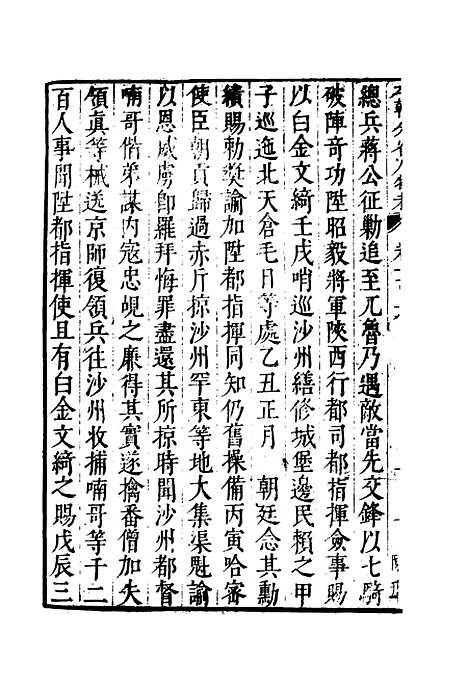 總兵蔣公征勦追至兀魯乃遇敵當先交鋒以七騎
破陣奇功陞昭毅將軍陝西行都司都指揮僉事賜
以白金文綺壬戌哨巡沙州繕修城堡邊民賴之甲
子巡迤北天倉毛日等處乙丑正月　朝廷念其勳
績賜勅奬諭加陞都指揮同知仍舊操備丙寅哈密
使臣朝貢歸過赤斤掠沙州罕東等地大集渠魁諭
以恩威虜卽羅拜悔罪盡還其所掠時聞沙州都督
喃哥偕弟謀内寇忠覘之廉得其實遂擒番僧加失
領真等械送京師復領兵往沙州收捕喃哥等千二
百人事聞陞都指揮使且有白金文綺之賜戊辰三